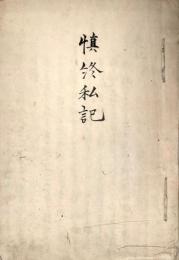 慎終私記